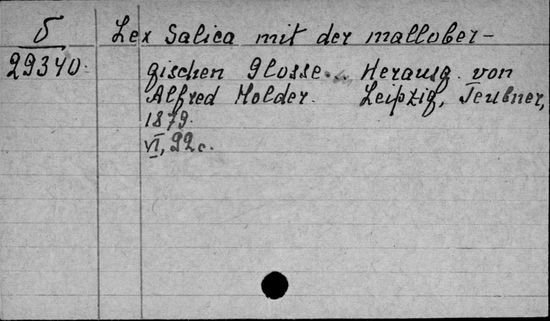 δ Lex Salica mit der mallober-
29340. gischen Glosse. Herausg. von
Alfred Holder. Leipzig, Teubner,
1879.
VI, 92 c.